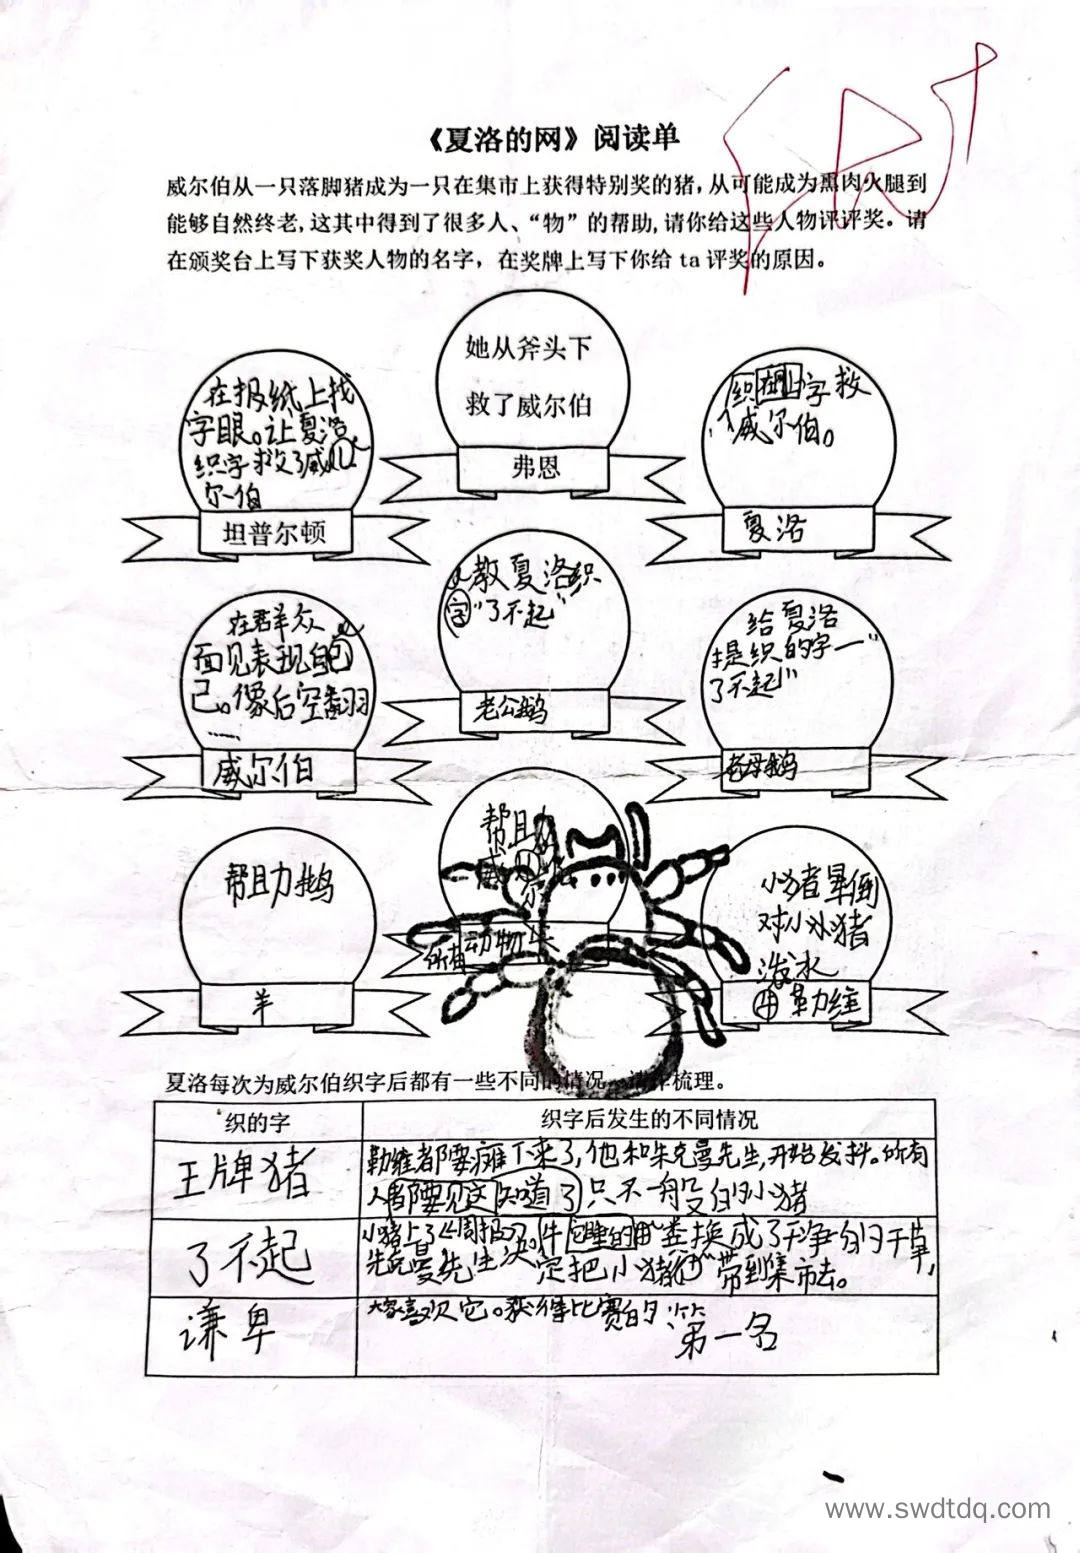 《夏洛的网》阅读单
威尔伯从一只落脚猪成为一只在集市上获得特别奖的猪，从可能成为熏肉火腿到
能够自然终老，这其中得到了很多人、“物”的帮助，请你给这些人物评评奖。请
在颁奖台上写下获奖人物的名字，在奖牌上写下你给 ta 评奖的原因。
她从斧头下
救了威尔伯
弗恩
在报纸上找
字眼。让夏洛
织字救了威
尔伯
坦普尔顿
织 字救
了威尔伯。
夏洛
在群众
面见表现自
己。像后空翻
……
威尔伯
教夏洛织
字“了不起”
老公鹅
给夏洛
提织的字一“
了不起”
老母鹅
帮助鹅
羊
帮助
威
尔
所有动物
小猪晕倒
对小小猪
泼水
用 勒维
夏洛每次为威尔伯织字后都有一些不同的情况 请 梳理。
织的字
织字后发生的不同情况
王牌猪
勒维都要瘫下来了，他和朱克曼先生，开始发抖。所有
人都要见这 知道了 只不一般的小猪
了不起
小猪上了《周报》 牛 睡的 粪换成了干净的干草，
朱克曼先生决定把小猪 带到集市去。
谦卑
大家喜欢它。获得比赛的
第一名
www.swdtdq.com